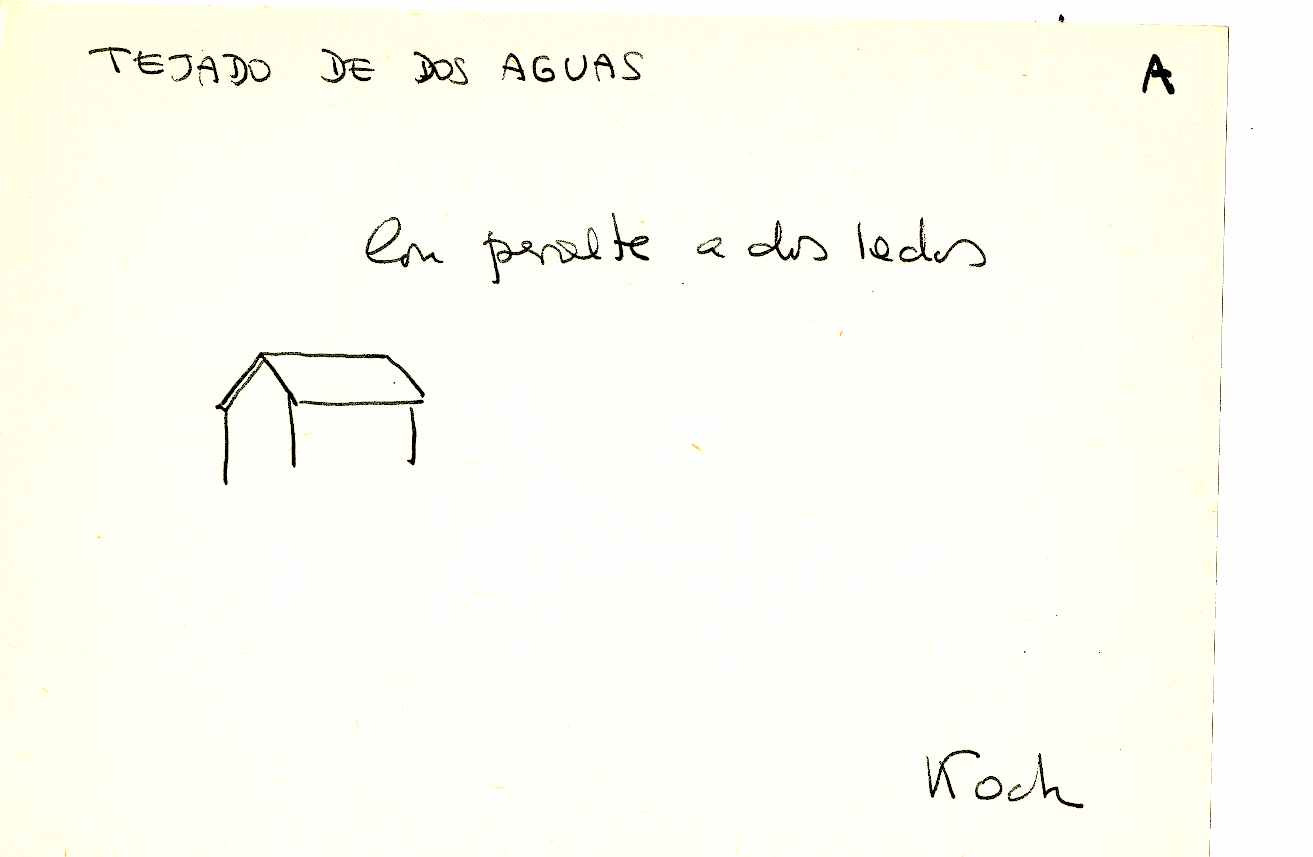 TEJADO DE DOS AGUAS
A
Con peralte a dos lados
Koch